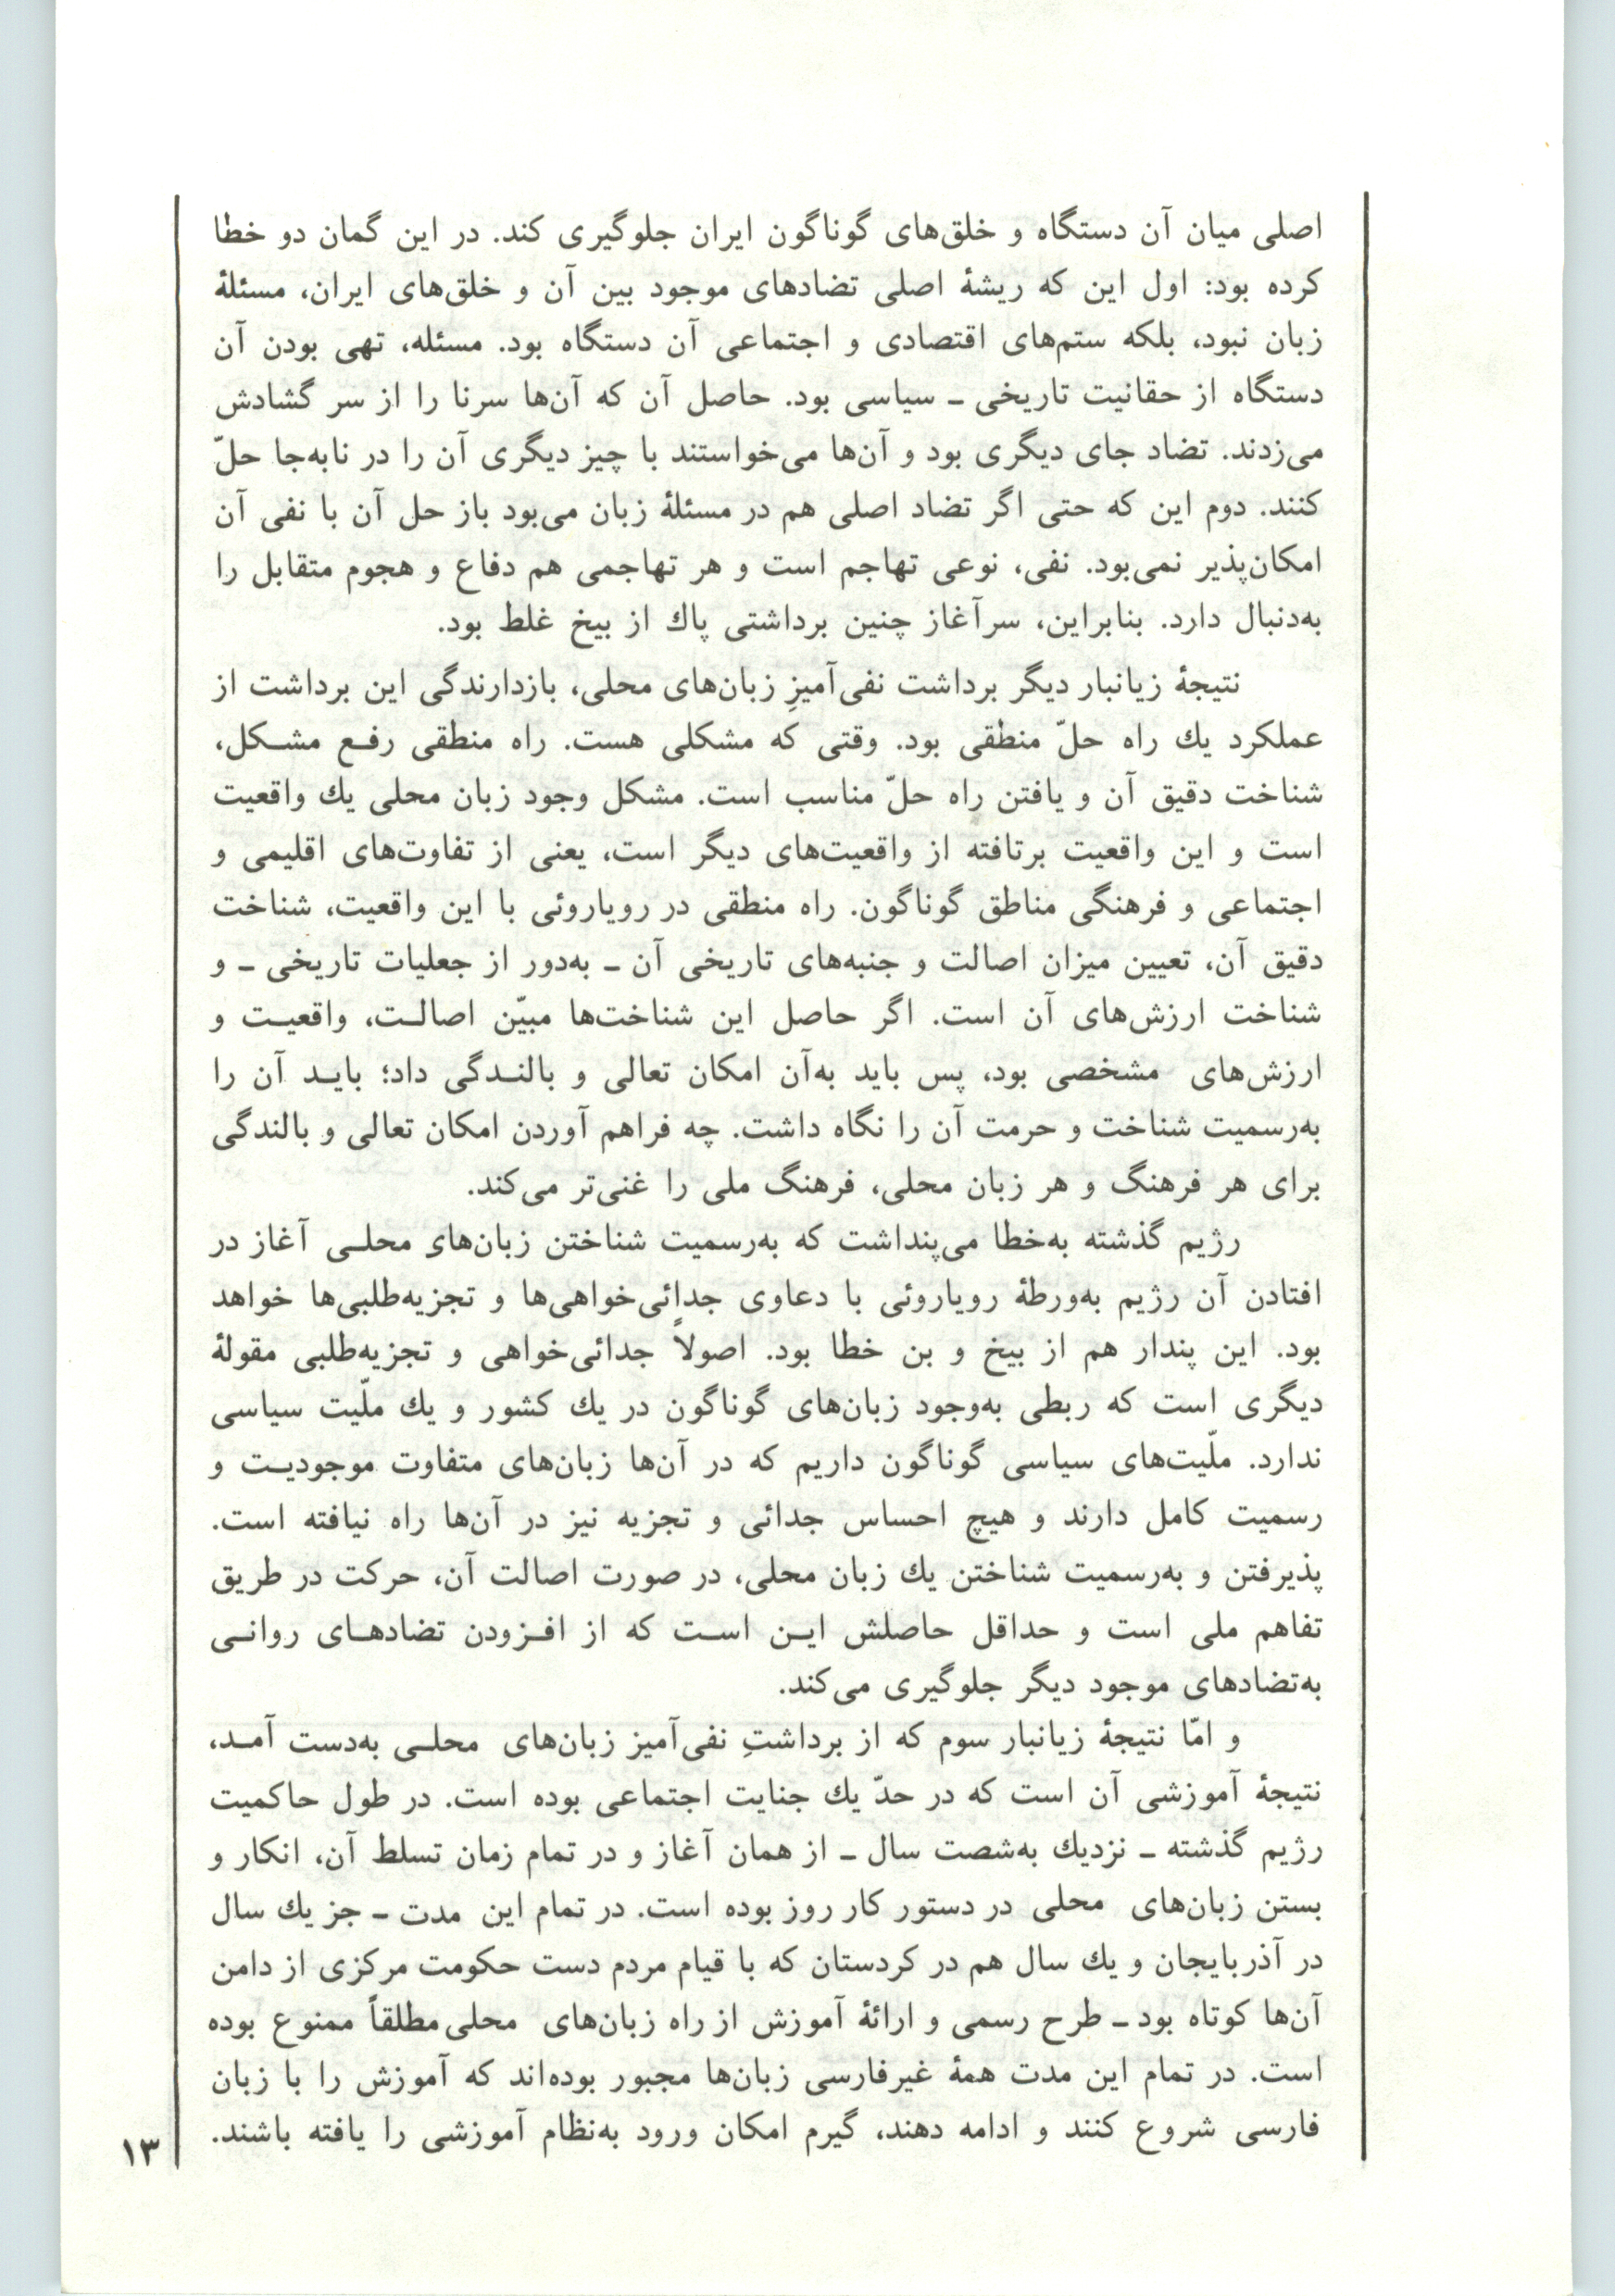 اصلی میان آن دستگاه و خلق‌های گوناگون ایران جلوگیری کند. در این گمان دو خطا
کرده بود: اول این که ریشهٔ اصلی تضادهای موجود بین آن و خلق‌های ایران، مسئلهٔ
زبان نبود، بلکه ستم‌های اقتصادی و اجتماعی آن دستگاه بود. مسئله، تهی بودن آن
دستگاه از حقانیت تاریخی ـ سیاسی بود. حاصل آن که آن‌ها سرنا را از سر گشادش
می‌زدند. تضاد جای دیگری بود و آن‌ها می‌خواستند با چیز دیگری آن را در نابه‌جا حلّ
کنند. دوم این که حتی اگر تضاد اصلی هم در مسئلهٔ زبان می‌بود باز حل آن با نفی آن
امکان‌پذیر نمی‌بود. نفی، نوعی تهاجم است و هر تهاجمی هم دفاع و هجوم متقابل را
به‌دنبال دارد. بنابراین، سرآغاز چنین برداشتی پاك از بیخ غلط بود.
نتیجهٔ زیانبار دیگر برداشت نفی‌آمیزِ زبان‌های محلی، بازدارندگی این برداشت از
عملکرد یك راه حلّ منطقی بود. وقتی که مشکلی هست. راه منطقی رفـع مشـکل،
شناخت دقیق آن و یافتن راه حلّ مناسب است. مشکل وجود زبان محلی یك واقعیت
است و این واقعیت برتافته از واقعیت‌های دیگر است، یعنی از تفاوت‌های اقلیمی و
اجتماعی و فرهنگی مناطق گوناگون. راه منطقی در رویاروئی با این واقعیت، شناخت
دقیق آن، تعیین میزان اصالت و جنبه‌های تاریخی آن ـ به‌دور از جعلیات تاریخی ـ و
شناخت ارزش‌های آن است. اگر حاصل این شناخت‌ها مبیّن اصالـت، واقعیـت و
ارزش‌های مشخصی بود، پس باید به‌آن امکان تعالی و بالنـدگی داد؛ بایـد آن را
به‌رسمیت شناخت و حرمت آن را نگاه داشت. چه فراهم آوردن امکان تعالی و بالندگی
برای هر فرهنگ و هر زبان محلی، فرهنگ ملی را غنی‌تر می‌کند.
رژیم گذشته به‌خطا می‌پنداشت که به‌رسمیت شناختن زبان‌های محلـی آغاز در
افتادن آن رژیم به‌ورطهٔ رویاروئی با دعاوی جدائی‌خواهی‌ها و تجزیه‌طلبی‌ها خواهد
بود. این پندار هم از بیخ و بن خطا بود. اصولاً جدائی‌خواهی و تجزیه‌طلبی مقولهٔ
دیگری است که ربطی به‌وجود زبان‌های گوناگون در یك کشور و یك ملّیت سیاسی
ندارد. ملّیت‌های سیاسی گوناگون داریم که در آن‌ها زبان‌های متفاوت موجودیـت و
رسمیت کامل دارند و هیچ احساس جدائی و تجزیه نیز در آن‌ها راه نیافته است.
پذیرفتن و به‌رسمیت شناختن یك زبان محلی، در صورت اصالت آن، حرکت در طریق
تفاهم ملی است و حداقل حاصلش ایـن اسـت که از افـزودن تضادهـای روانـی
به‌تضادهای موجود دیگر جلوگیری می‌کند.
و امّا نتیجهٔ زیانبار سوم که از برداشتِ نفی‌آمیز زبان‌های محلـی به‌دست آمـد،
نتیجهٔ آموزشی آن است که در حدّ یك جنایت اجتماعی بوده است. در طول حاکمیت
رژیم گذشته ـ نزدیك به‌شصت سال ـ از همان آغاز و در تمام زمان تسلط آن، انکار و
بستن زبان‌های محلی در دستور کار روز بوده است. در تمام این مدت ـ جز یك سال
در آذربایجان و یك سال هم در کردستان که با قیام مردم دست حکومت مرکزی از دامن
آن‌ها کوتاه بود ـ طرح رسمی و ارائهٔ آموزش از راه زبان‌های محلی مطلقاً ممنوع بوده
است. در تمام این مدت همهٔ غیرفارسی زبان‌ها مجبور بوده‌اند که آموزش را با زبان
فارسی شروع کنند و ادامه دهند، گیرم امکان ورود به‌نظام آموزشی را یافته باشند.
۱۳